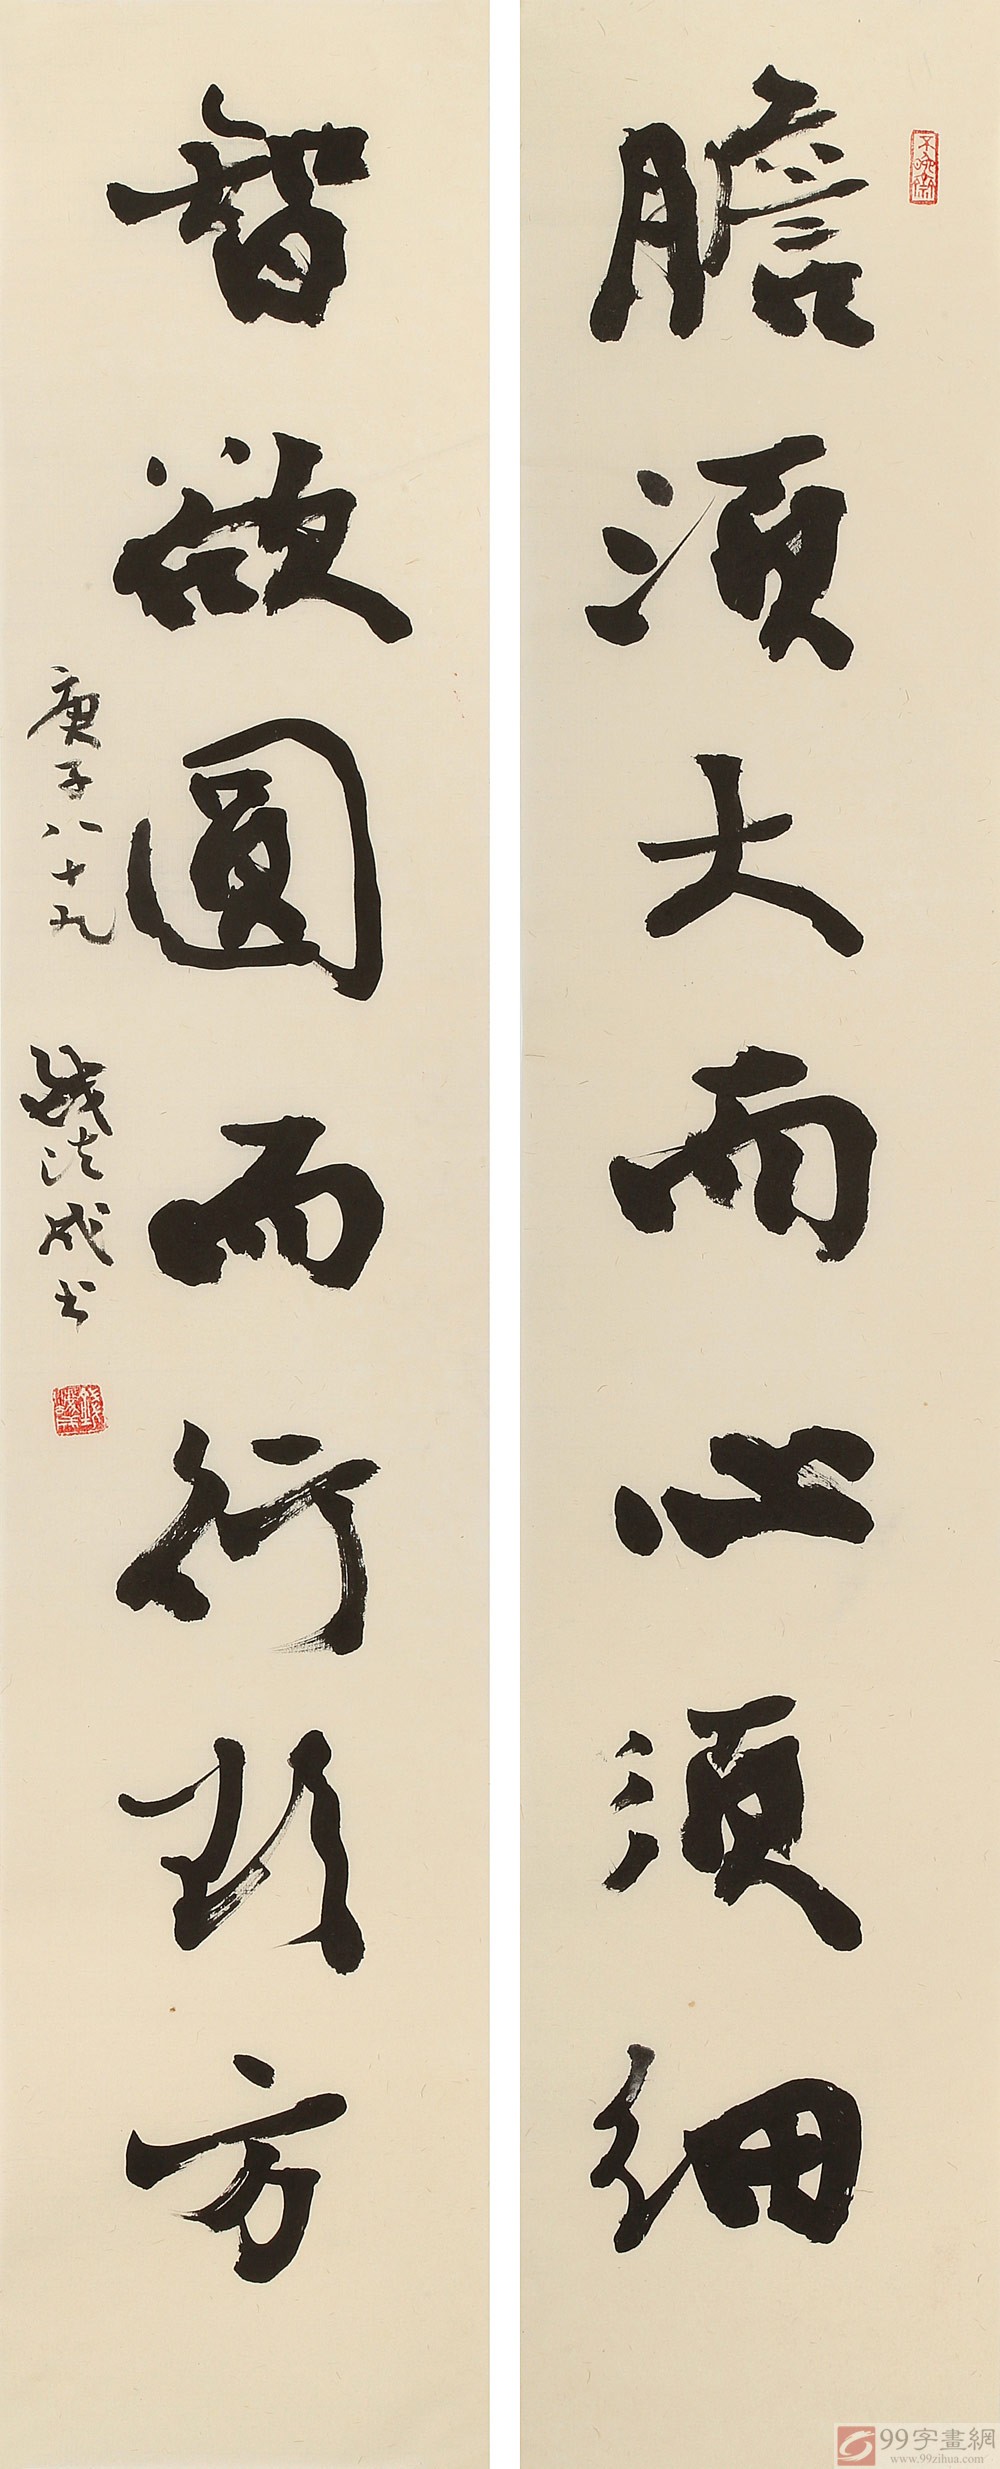 膽須大而心須細
智欲圓而行方
庚子八十九
錢法成书
99字畫網
www.99zihua.com